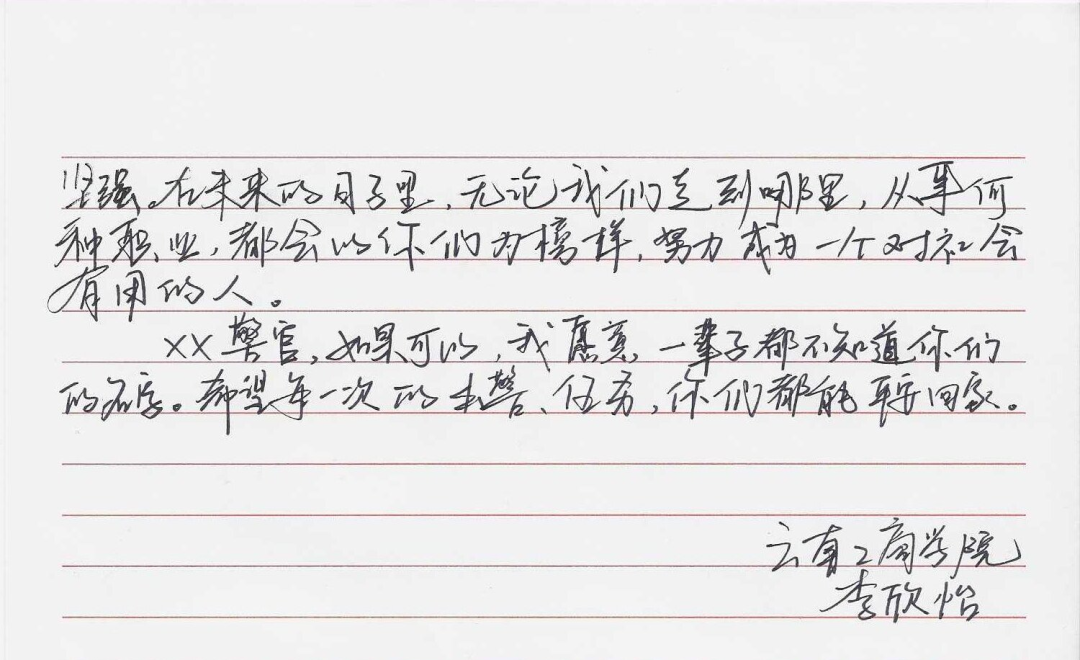 坚强。在未来的日子里，无论我们走到哪里，从事何
种职业，都会以你们为榜样，努力成为一个对社会
有用的人。
XX警官，如果可以，我愿意一辈子都不知道你们
的名字。希望每一次的出警、任务，你们都能平安回家。
云南工商学院
李欣怡